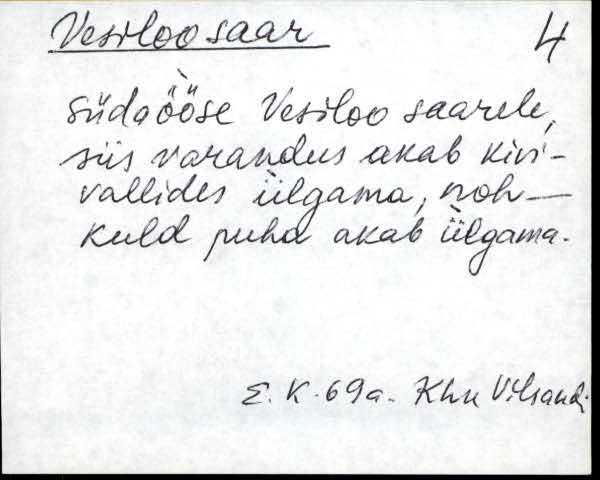 Vesiloo saar
4
südaö̀öse Vesiloo saarele,
siis varandus akab kivi-
vallides ì̈lgama, noh —
kuld puha akab ì̈lgama.
E. K. 69a. Khn Vilsandi